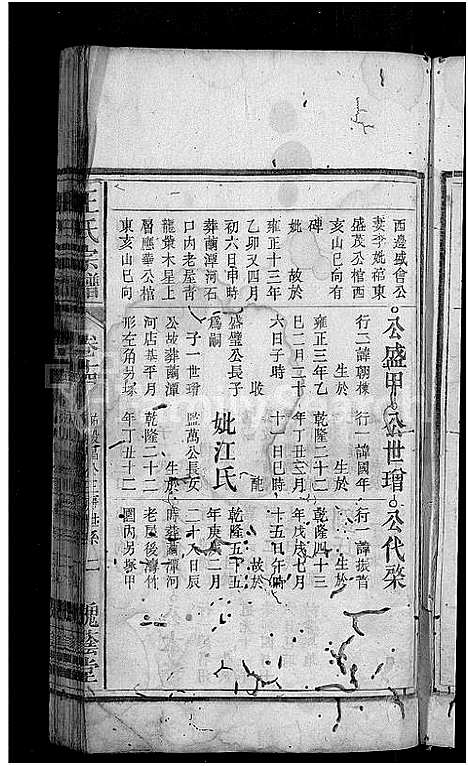 西邊盛會公
妻李妣棺東
盛茂公棺西
亥山巳向有
碑
妣 故於
雍正十三年
乙卯又四月
初六日申時
葬藺潭河石
口內老屋背
龍業木星上
層應華公棺
東亥山巳向
公盛甲
行二諱朝棟
生於
雍正三年乙
巳二月二十
六日子時 故
盛璧公長子
爲嗣
子一世璔
公故葬藺潭
河店基平月
形左角另塚
公世璔
行一諱國年
生於
乾隆二十二
年丁丑三月
十一日巳時
配
妣江氏
監萬公長女
生於
乾隆二十二
年丁丑十二
公代棨
行一諱振首
生於
乾隆四十三
年戊戌七月
十五日午時
故於
乾隆五十五
年庚戌二月
二十八日辰
時葬藺潭河
老屋後濤竹
園內另塚甲
王氏宗譜
卷
槐蔭堂